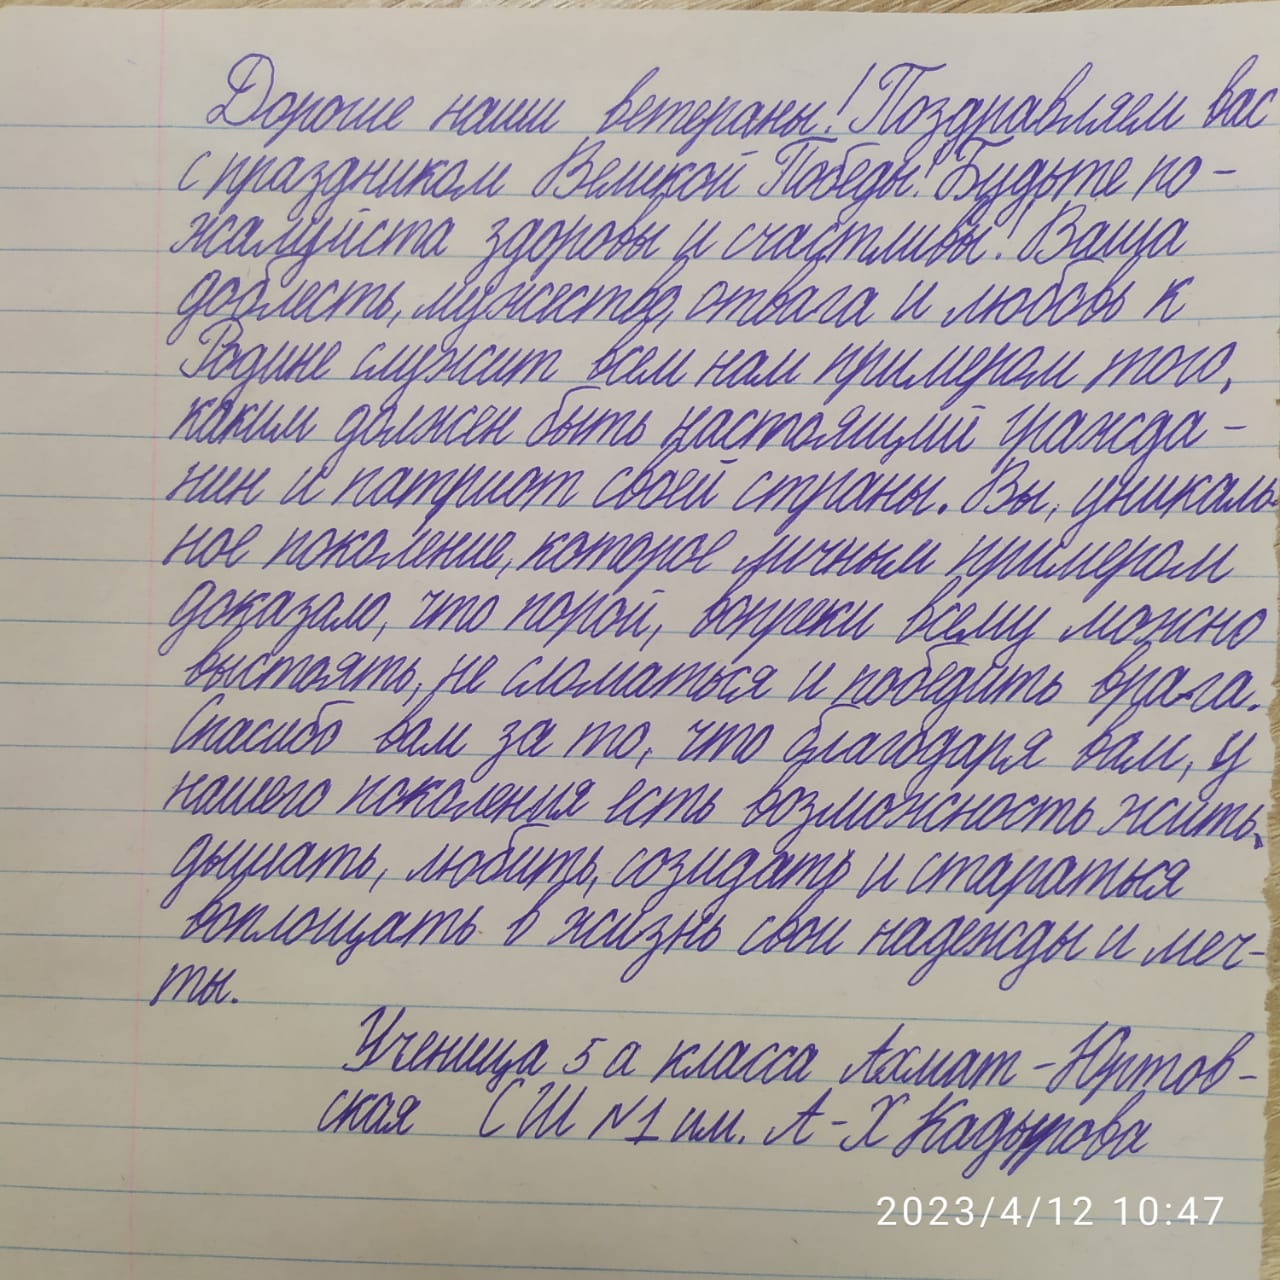 Дорогие наши ветераны! Поздравляем вас
с праздником Великой Победы! Будьте по-
жалуйста здоровы и счастливы! Ваша
доблесть, мужество, отвага и любовь к
Родине служит всем нам примером того,
каким должен быть настоящий гражда-
нин и патриот своей страны. Вы, уникаль-
ное поколение, которое личным примером
доказало, что порой, вопреки всему можно
выстоять, не сломаться и победить врага.
Спасибо вам за то, что благодаря вам, у
нашего поколения есть возможность жить,
дышать, любить, созидать и стараться
воплощать в жизнь свои надежды и меч-
ты.
Ученица 5 а класса Ахмат-Юртов-
ская СШ №1 им. А-Х Кадырова
2023/4/12 10:47